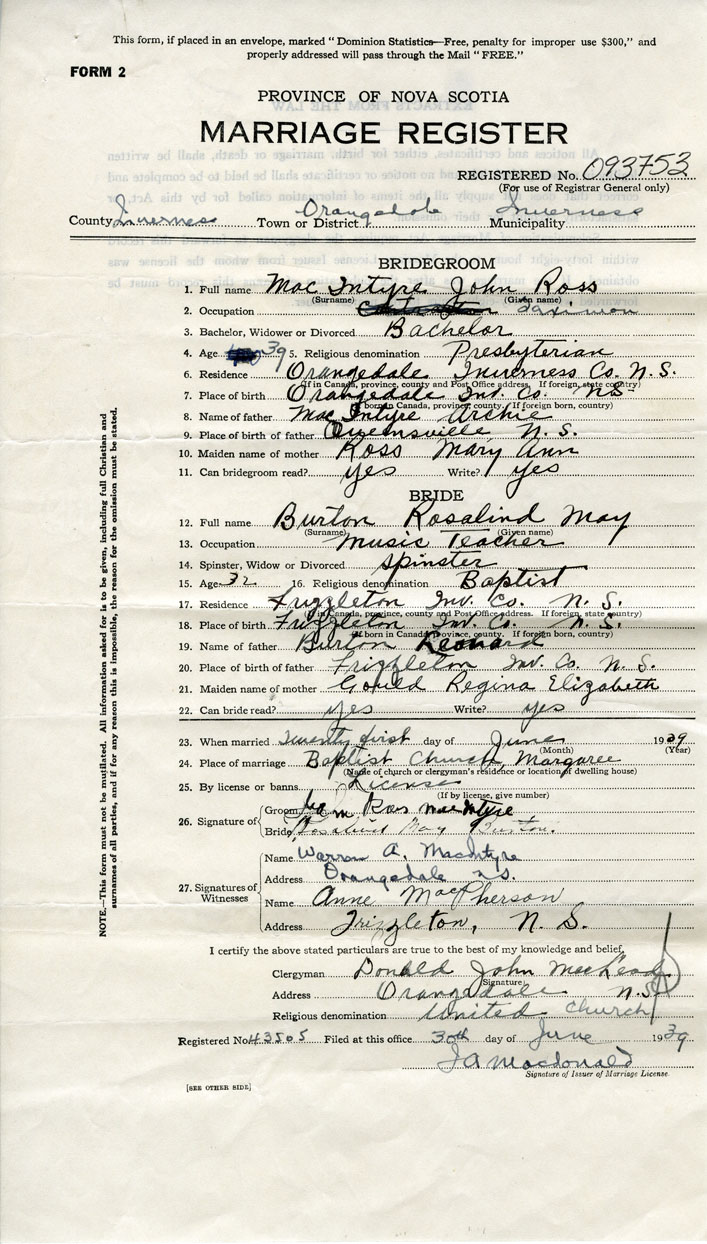 This form, if placed in an envelope, marked "Dominion Statistics—Free, penalty for improper use $300," and
properly addressed will pass through the Mail "FREE."
FORM 2
PROVINCE OF NOVA SCOTIA
MARRIAGE REGISTER
REGISTERED No. 093753
(For use of Registrar General only)
County Inverness Town or District Orangedale Municipality Inverness
BRIDEGROOM
1. Full name Mac Intyre John Ross
(Surname) (Given name)
2. Occupation Taximan
3. Bachelor, Widower or Divorced Bachelor
4. Age 39 5. Religious denomination Presbyterian
6. Residence Orangedale Inverness Co. N. S.
(If in Canada, province, county and Post Office address. If foreign, state country)
7. Place of birth Orangedale Inv. Co. N S
(If born in Canada, province, county. If foreign born, country)
8. Name of father Mac Intyre Archie
9. Place of birth of father Queensville N. S.
10. Maiden name of mother Ross Mary Ann
11. Can bridegroom read? yes Write? yes
BRIDE
12. Full name Burton Rosalind May
(Surname) (Given name)
13. Occupation Music Teacher
14. Spinster, Widow or Divorced Spinster
15. Age 32 16. Religious denomination Baptist
17. Residence Frizzleton Inv. Co. N. S.
(If in Canada, province, county and Post Office address. If foreign, state country)
18. Place of birth Frizzleton Inv. Co. N. S.
(If born in Canada, province, county. If foreign born, country)
19. Name of father Burton Leonard
20. Place of birth of father Frizzleton Inv. Co N. S.
21. Maiden name of mother Gould Regina Elizabeth
22. Can bride read? yes Write? yes
23. When married Twenty first day of June 1939
(Month) (Year)
24. Place of marriage Baptist Church, Margaree
(Name of church or clergyman's residence or location of dwelling house)
25. By license or banns License
(If by license, give number)
26. Signature of Groom Ross MacIntyre
Bride Rosalind May Burton.
27. Signatures of Witnesses
Name Warren A. MacIntyre
Address Orangedale N.S.
Name Anne MacPherson
Address Frizzleton, N. S.
I certify the above stated particulars are true to the best of my knowledge and belief,
Clergyman Donald John MacLeod
(Signature)
Address Orangedale N.S.
Religious denomination United Church
Registered No. 43505 Filed at this office 30th day of June 1939
J A Macdonald
Signature of Issuer of Marriage License.
[SEE OTHER SIDE]
NOTE.—This form must not be mutilated. All information asked for is to be given, including full Christian and
surnames of all parties, and if for any reason this is impossible, the reason for the omission must be stated.